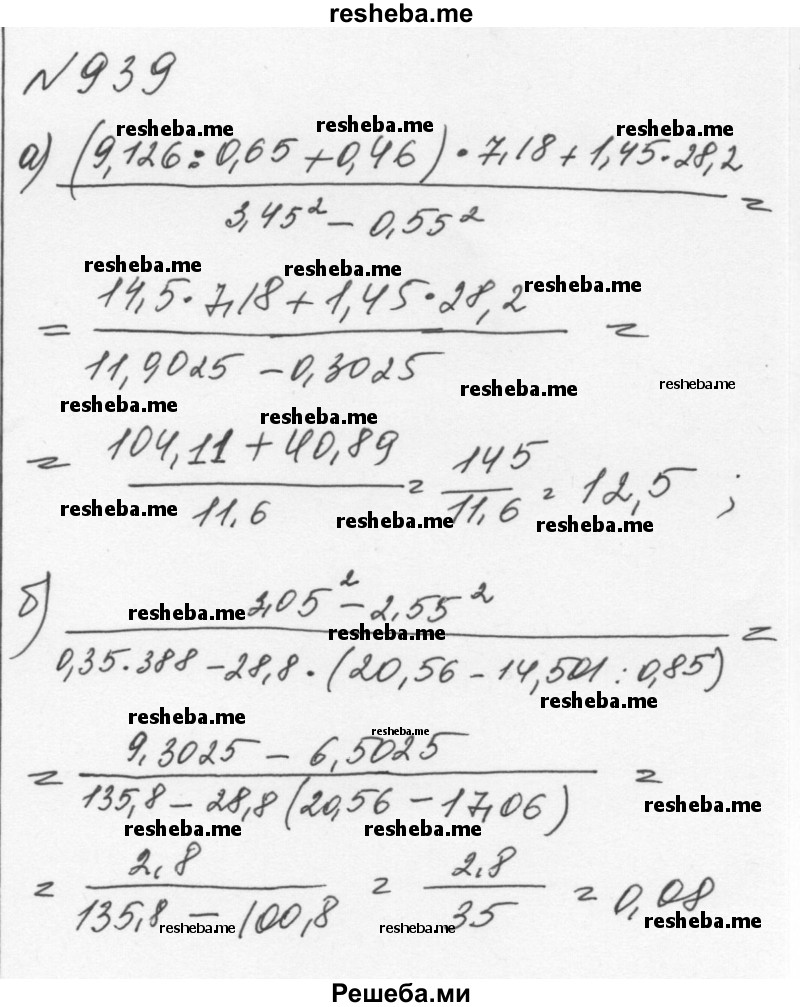 resheba.me
№939
resheba.me resheba.me resheba.me
а) (9,126:0,65+0,46)·7,18+1,45·28,2 =
3,45²-0,55²
resheba.me resheba.me resheba.me
= 14,5·7,18+1,45·28,2 =
11,9025-0,3025
resheba.me resheba.me
resheba.me resheba.me
= 104,11+40,89 = 145 = 12,5 ;
11,6 11,6
resheba.me resheba.me resheba.me
б) 3,05²-2,55² =
resheba.me resheba.me
0,35·388-28,8·(20,56-14,501:0,85)
resheba.me
resheba.me resheba.me
= 9,3025-6,5025 =
135,8-28,8(20,56-17,06)
resheba.me
resheba.me resheba.me
= 2,8 = 2,8 = 0,08
135,8-100,8 35
resheba.me resheba.me resheba.me
Решеба.ми